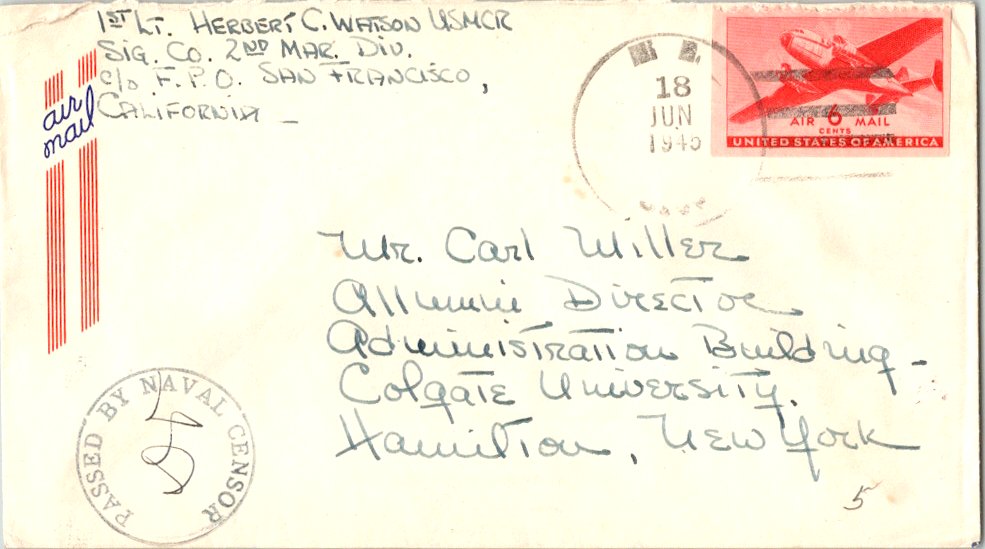 1ST LT. HERBERT C. WATSON USMCR
SIG. CO. 2ND MAR. DIV.
c/o F.P.O. SAN FRANCISCO,
CALIFORNIA
air
mail
18
JUN
1945
AIR 6 MAIL
CENTS
UNITED STATES OF AMERICA
Mr. Carl Miller
Allumnie Director
Administration Building
Colgate University.
Hamilton, New York
PASSED BY NAVAL CENSOR
5